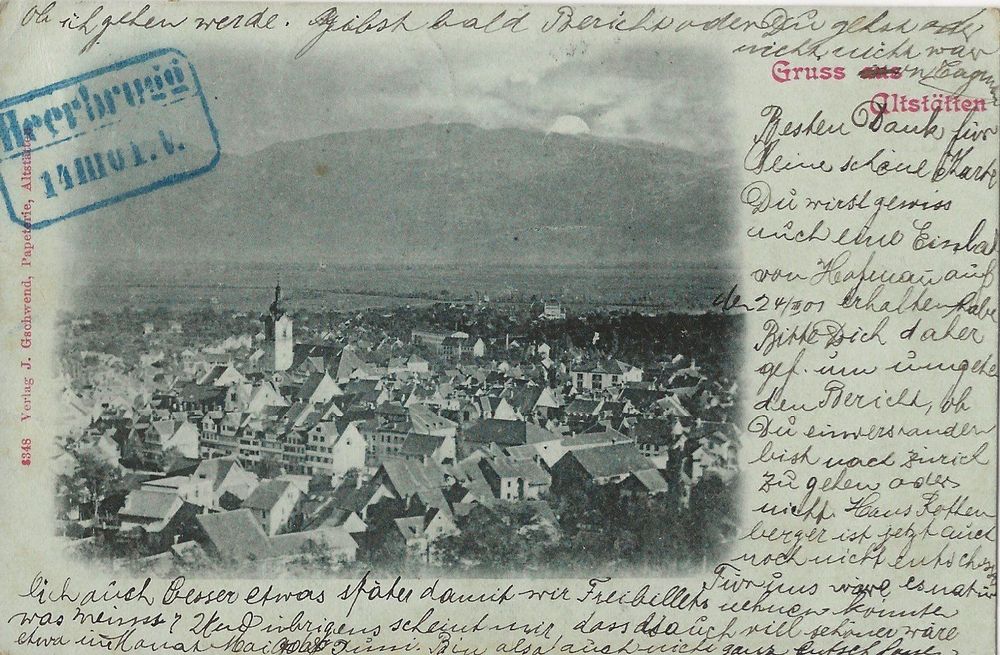 ob ich gehen werde. Gebst bald Bericht oder Du gehst oder
nicht nicht war
Gruss aus
Altstätten
Heerbrugg
14 III 01. V.
8348 Verlag J. Gschwend, Papeterie, Altstätten
Besten Dank für
Deine schöne Karte
Du wirst gewiss
auch eine Einla
von Hofenau auf
den 24/III 01 erhalten habe
Bitte Dich daher
gef. um umgehe
den Bericht, ob
Du einverstanden
bist nach Zürich
zu gehen oder
nicht. Hans Rothen
berger ist jetzt auch
noch nicht entsch
Für uns wäre es natür
lich auch besser etwas später damit wir Freibillets nehmen könnte
was meinst? Und übrigens scheint mir, dass auch viel schöner wäre
etwa im Monat Mai oder Juni. Bin also auch nicht ganz entschlossen